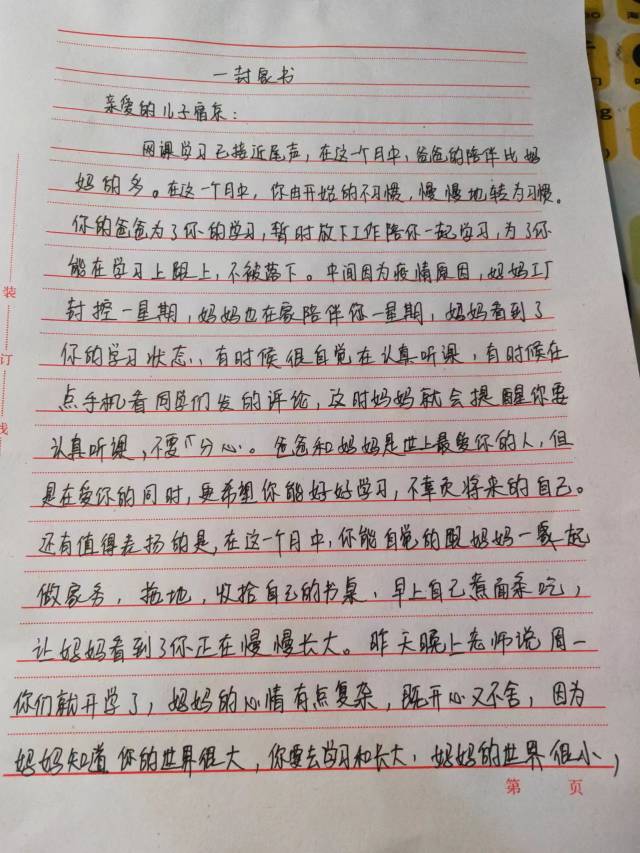 一封家书
亲爱的儿子宿东：
网课学习已接近尾声，在这一个月中，爸爸的陪伴比妈
妈的多。在这一个月中，你由开始的不习惯，慢慢地转为习惯。
你的爸爸为了你的学习，暂时放下工作陪你一起学习，为了你
能在学习上跟上，不被落下。中间因为疫情原因，妈妈工厂
封控一星期，妈妈也在家陪伴你一星期，妈妈看到了
你的学习状态，有时候很自觉在认真听课，有时候在
点手机看同学们发的评论，这时妈妈就会提醒你要
认真听课，不要分心。爸爸和妈妈是世上最爱你的人，但
是在爱你的同时，更希望你能好好学习，不辜负将来的自己。
还有值得表扬的是，在这一个月中，你能自觉的跟妈妈一起
做家务，拖地，收拾自己的书桌，早上自己煮面条吃，
让妈妈看到了你正在慢慢长大。昨天晚上老师说周一
你们就开学了，妈妈的心情有点复杂，既开心又不舍，因为
妈妈知道你的世界很大，你要去学习和长大，妈妈的世界很小，
装
订
线
第 页